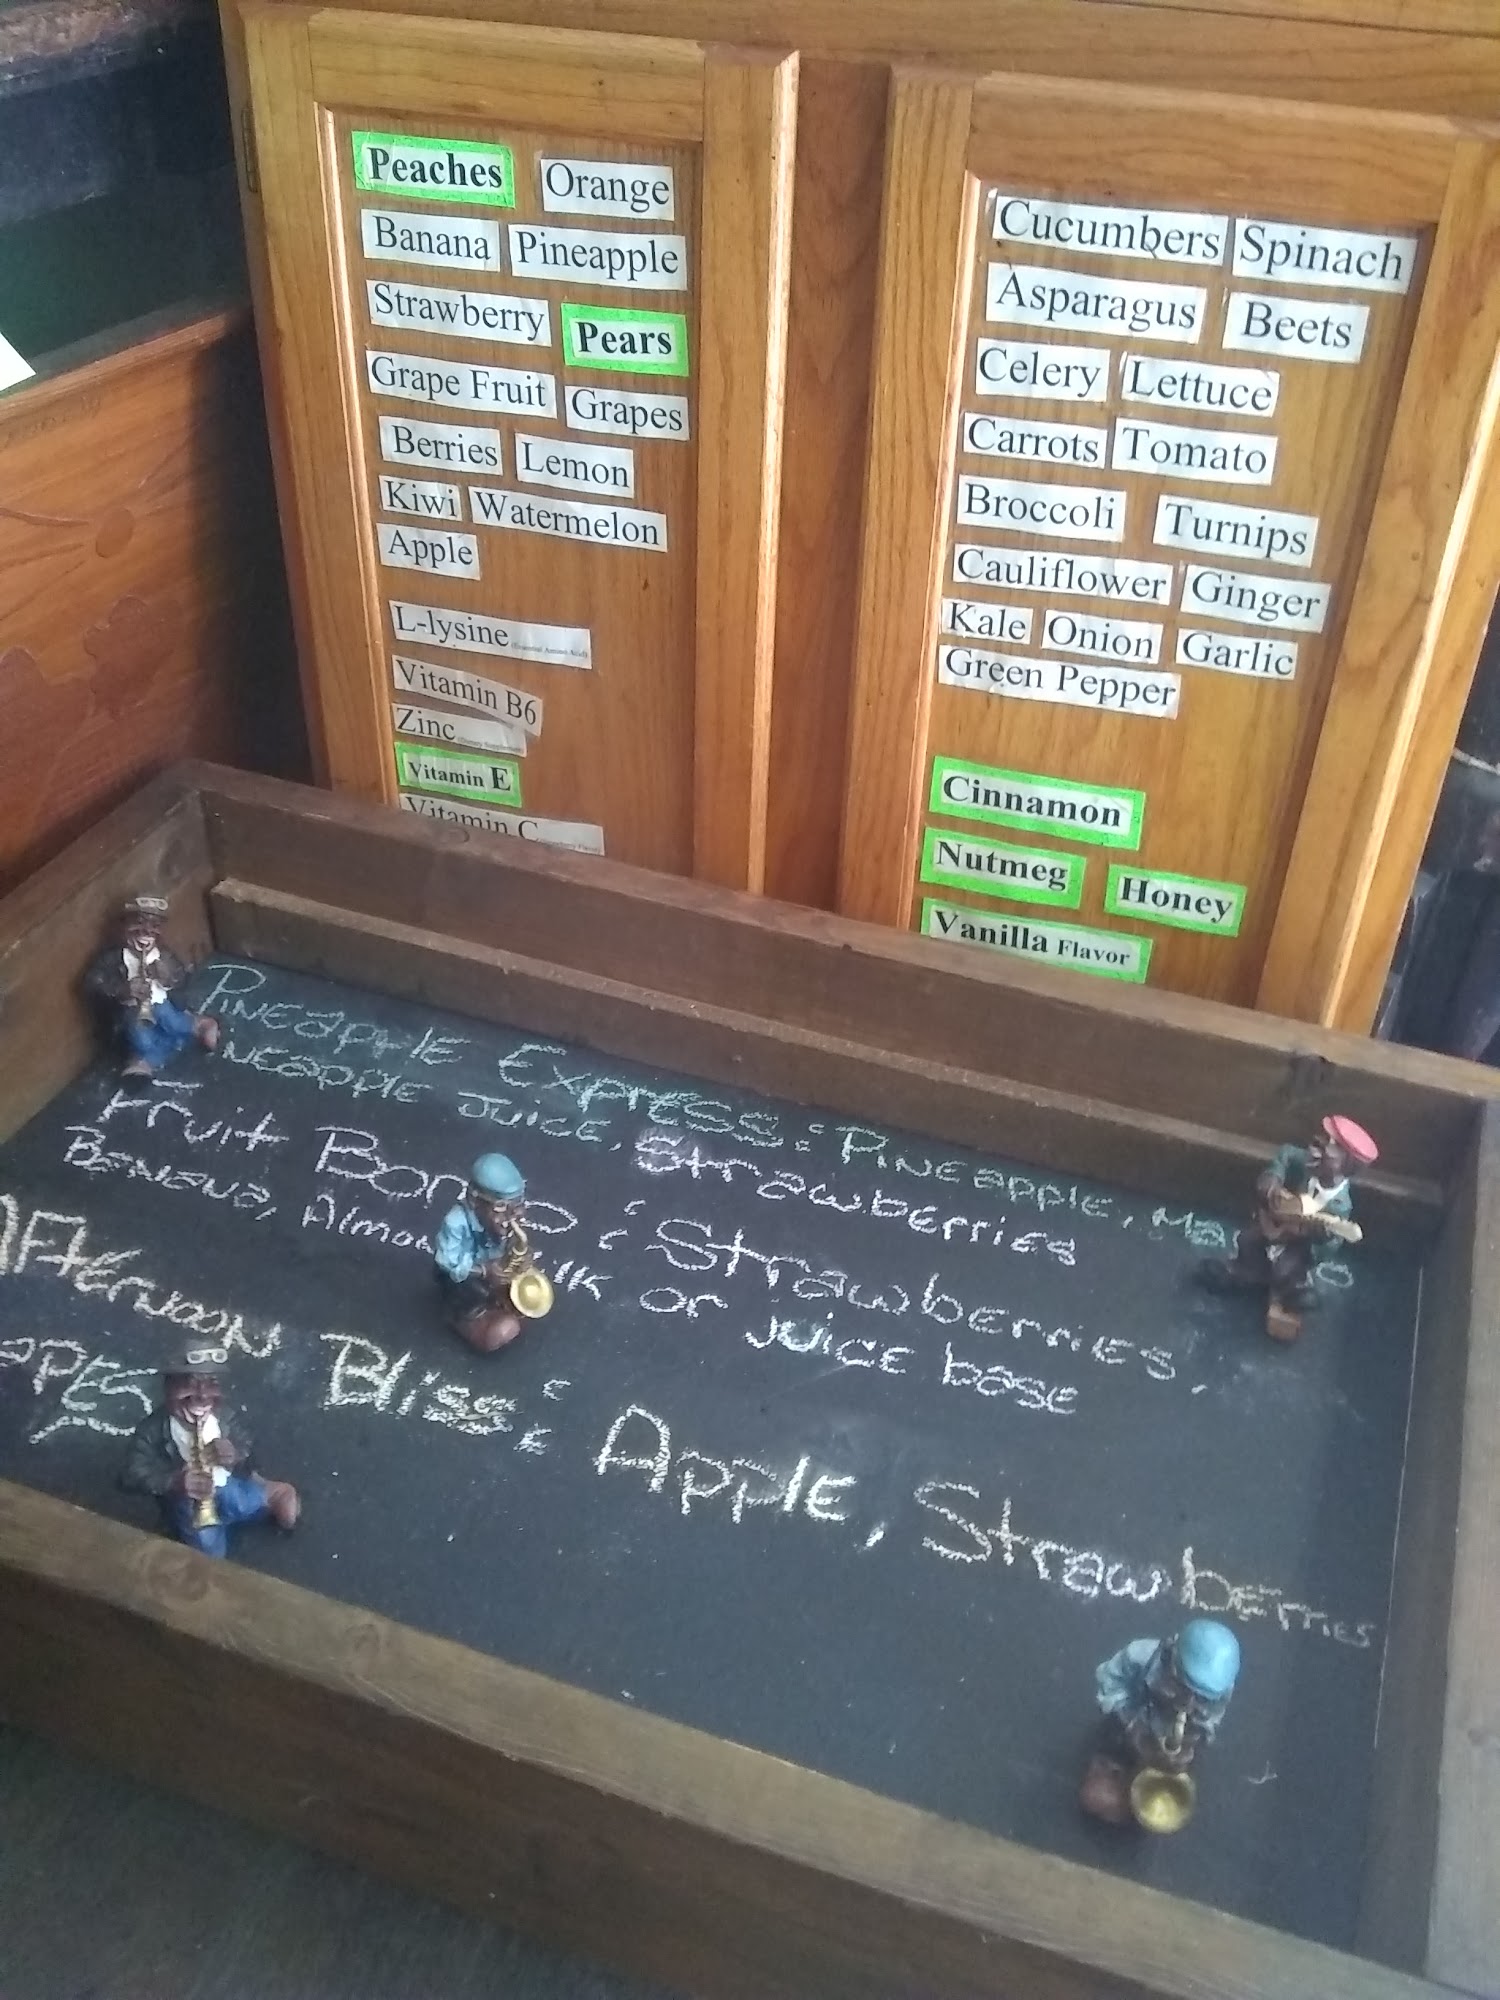 Peaches Orange
Banana Pineapple
Strawberry Pears
Grape Fruit Grapes
Berries Lemon
Kiwi Watermelon
Apple
L-lysine (Essential Amino Acid)
Vitamin B6
Zinc (Dietary Supplement)
Vitamin E
Vitamin C
Cucumbers Spinach
Asparagus Beets
Celery Lettuce
Carrots Tomato
Broccoli Turnips
Cauliflower Ginger
Kale Onion Garlic
Green Pepper
Cinnamon
Nutmeg Honey
Vanilla Flavor
PINEAPPLE EXPRESS: PINEAPPLE,
PINEAPPLE JUICE, Strawberries
Fruit : Strawberries,
BANANA, or JUICE base
AFTERNOON Bliss: APPLE, Strawberries